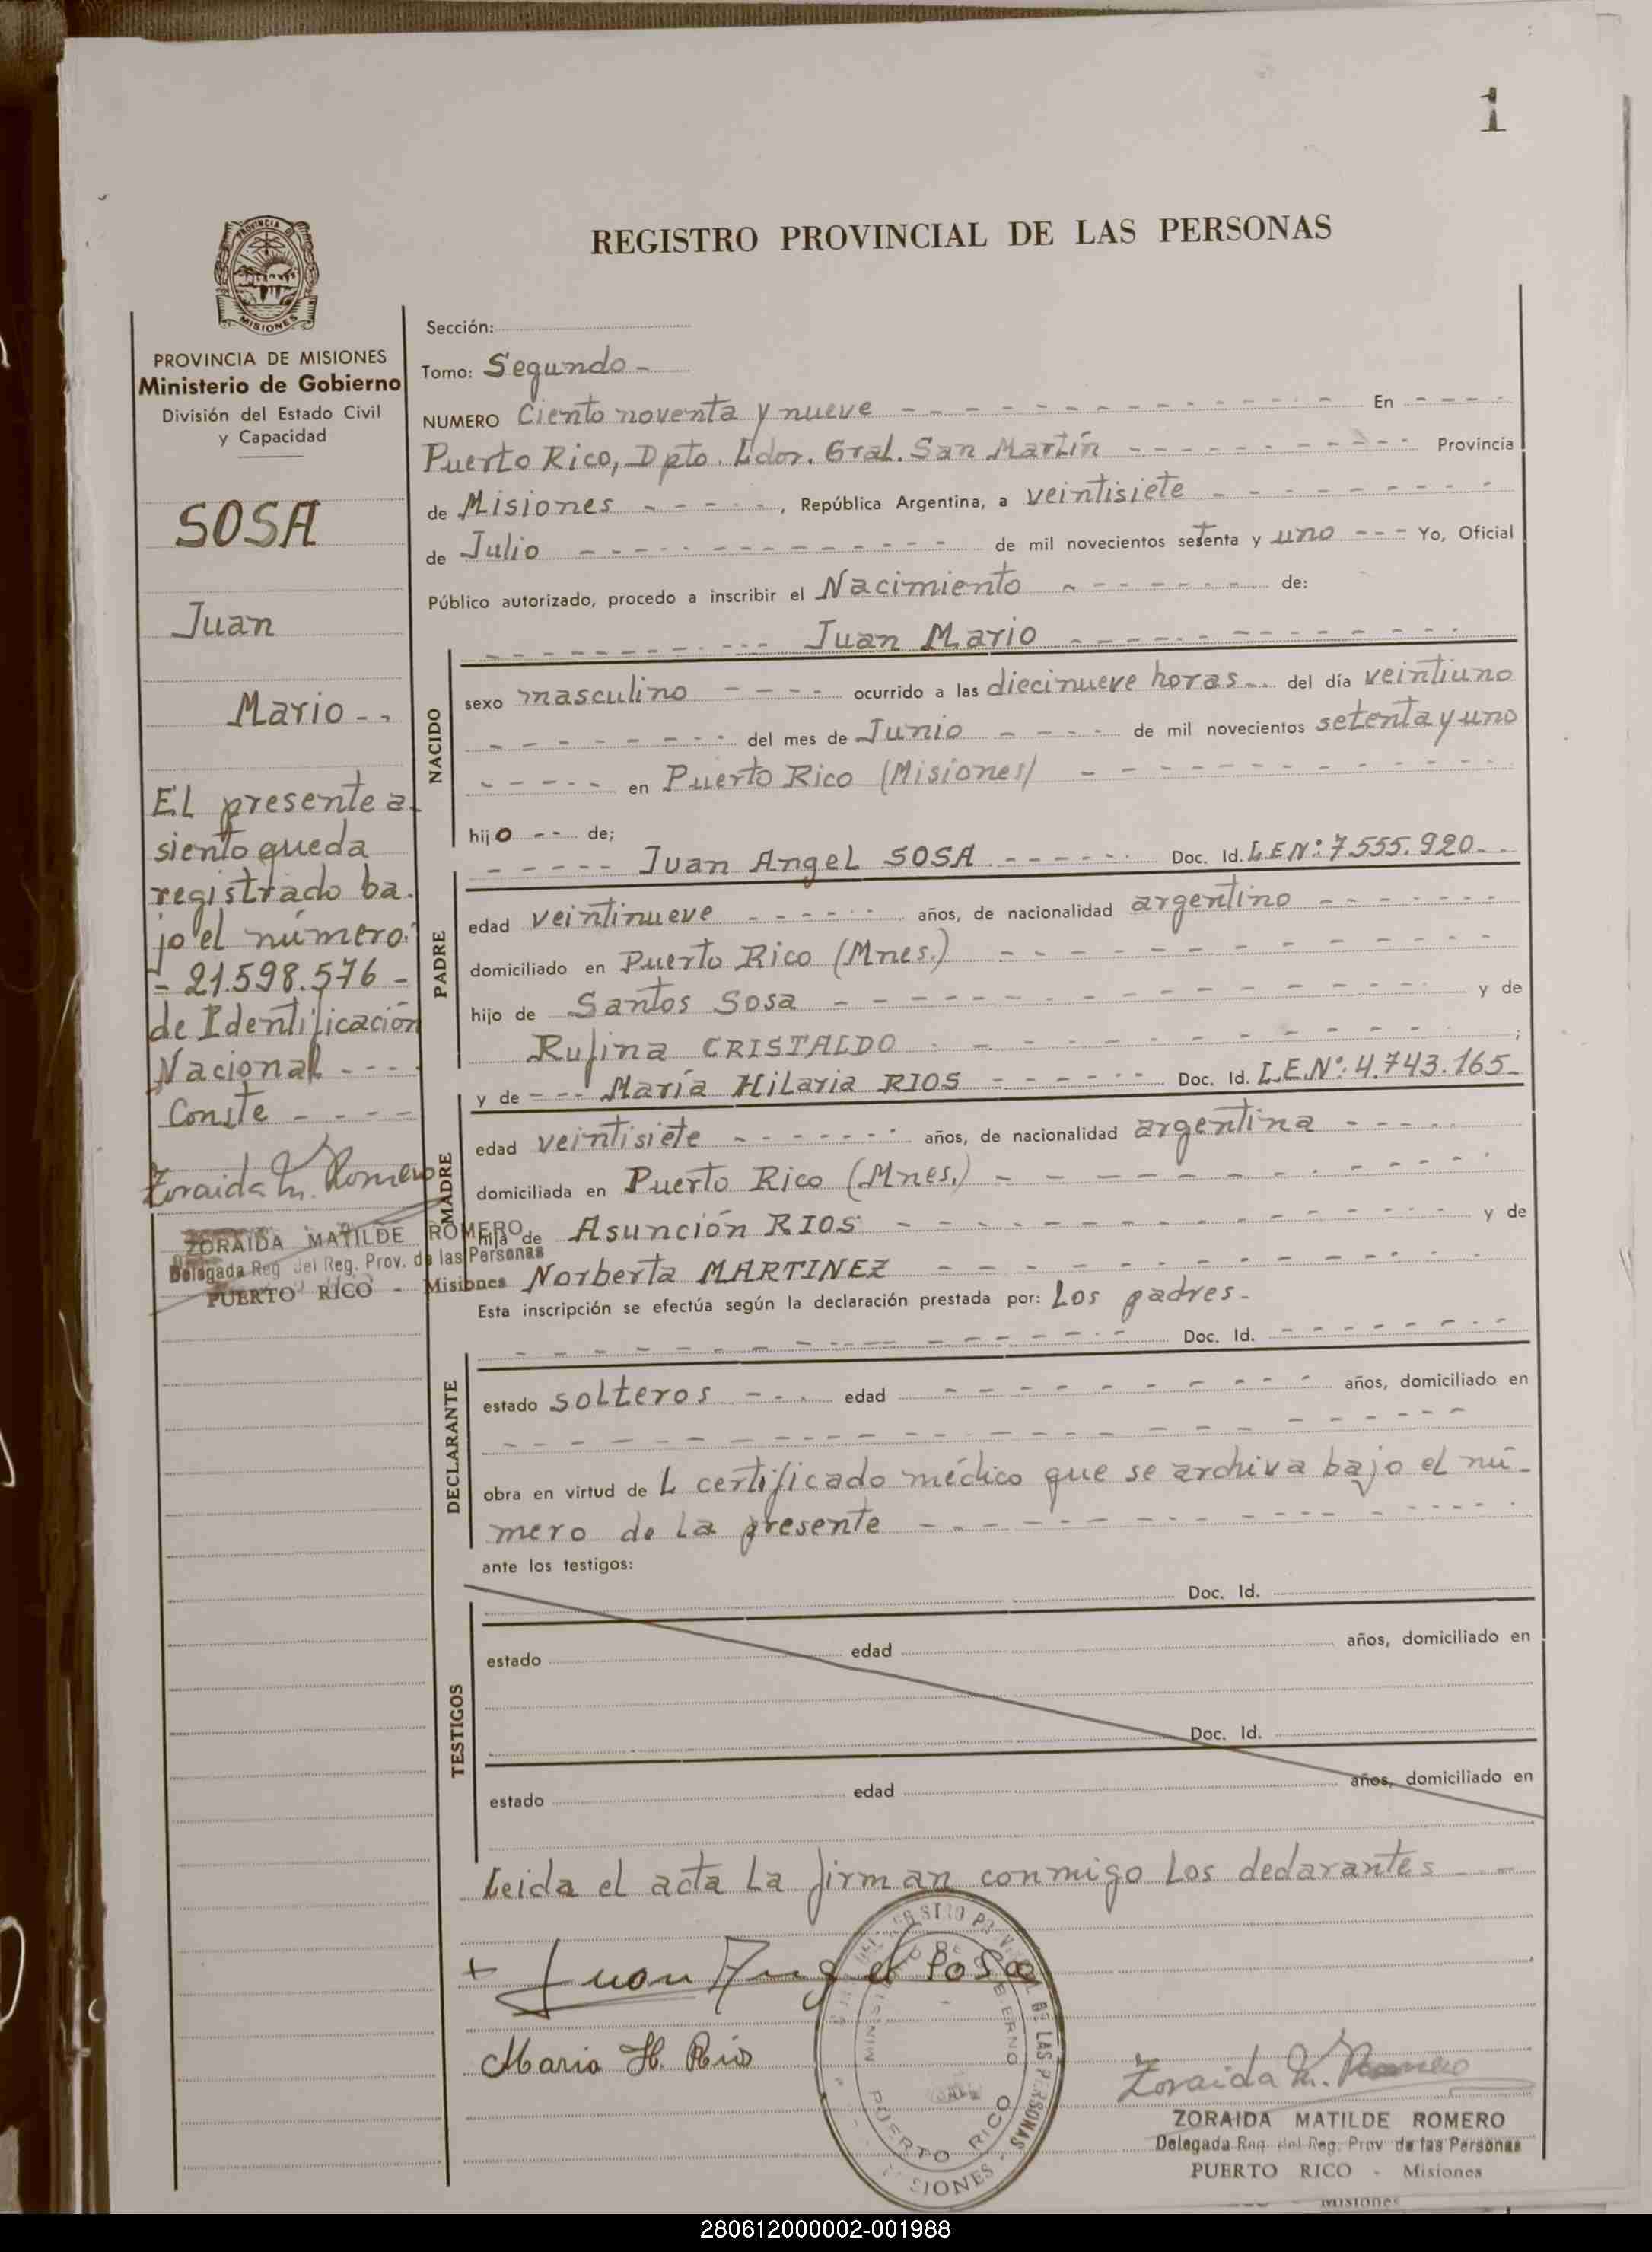 1
REGISTRO PROVINCIAL DE LAS PERSONAS
PROVINCIA DE
MISIONES
PROVINCIA DE MISIONES
Ministerio de Gobierno
División del Estado Civil
y Capacidad
SOSA
Juan
Mario - -
EL presente a
siento queda
registrado ba-
jo el número:
- 21.598.576 -
de Identificación
Nacional - - -
Conste - - - -
Zoraida M. Romero
ZORAIDA MATILDE ROMERO
Delegada Reg del Reg. Prov. de las Personas
PUERTO RICO - Misiones
Sección:
Tomo: Segundo -
NUMERO Ciento noventa y nueve - - - En - - - -
Puerto Rico, Dpto. Ldor. Gral. San Martín - - - Provincia
de Misiones - - - , República Argentina, a veintisiete - - -
de Julio - - - de mil novecientos setenta y uno - - - Yo, Oficial
Público autorizado, procedo a inscribir el Nacimiento - - - de:
- - - Juan Mario - - -
NACIDO
sexo masculino - - - ocurrido a las diecinueve horas - - del día veintiuno
- - - del mes de Junio - - - de mil novecientos setenta y uno
- - - en Puerto Rico (Misiones) - - -
hijo - - de;
- - - Juan Angel SOSA - - - Doc. Id. L.E.Nº: 7.555.920 - -
PADRE
edad veintinueve - - - años, de nacionalidad argentino - - -
domiciliado en Puerto Rico (Mnes.) - - -
hijo de Santos Sosa - - - y de
Rufina CRISTALDO - - - ;
y de - - - María Hilaria RIOS - - - Doc. Id. L.E.Nº: 4.743.165 -
MADRE
edad veintisiete - - - años, de nacionalidad argentina - - -
domiciliada en Puerto Rico (Mnes.) - - -
hija de Asunción RIOS - - - y de
Norberta MARTINEZ - - -
Esta inscripción se efectúa según la declaración prestada por: Los padres -
- - - Doc. Id. - - -
DECLARANTE
estado solteros - - - edad - - - años, domiciliado en
- - -
obra en virtud de L certificado médico que se archiva bajo el nú-
mero de la presente - - -
ante los testigos:
Doc. Id.
TESTIGOS
estado edad años, domiciliado en
Doc. Id.
estado edad años, domiciliado en
Leida el acta La firman conmigo Los declarantes - - -
+ Juan Angel Sosa
Maria H. Rios
DE LAS PERSONAS
PUERTO RICO
Zoraida M. Romero
ZORAIDA MATILDE ROMERO
Delegada Reg. del Reg. Prov de las Personas
PUERTO RICO - Misiones
Misiones
280612000002-001988